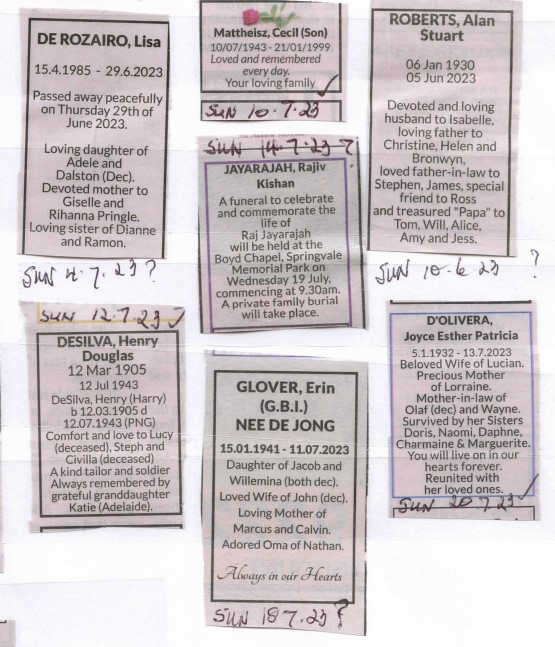 DE ROZAIRO, Lisa
15.4.1985 - 29.6.2023
Passed away peacefully
on Thursday 29th of
June 2023.
Loving daughter of
Adele and
Dalston (Dec).
Devoted mother to
Giselle and
Rihanna Pringle.
Loving sister of Dianne
and Ramon.
SUN 4.7.23 ?
Mattheisz, Cecil (Son)
10/07/1943 - 21/01/1999
Loved and remembered
every day.
Your loving family
SUN 10.7.23
ROBERTS, Alan
Stuart
06 Jan 1930
05 Jun 2023
Devoted and loving
husband to Isabelle,
loving father to
Christine, Helen and
Bronwyn,
loved father-in-law to
Stephen, James, special
friend to Ross
and treasured "Papa" to
Tom, Will, Alice,
Amy and Jess.
SUN 10-6 23 ?
SUN 14.7.23 ?
JAYARAJAH, Rajiv
Kishan
A funeral to celebrate
and commemorate the
life of
Raj Jayarajah
will be held at the
Boyd Chapel, Springvale
Memorial Park on
Wednesday 19 July,
commencing at 9.30am.
A private family burial
will take place.
SUN 12.7.23
DESILVA, Henry
Douglas
12 Mar 1905
12 Jul 1943
DeSilva, Henry (Harry)
b 12.03.1905 d
12.07.1943 (PNG)
Comfort and love to Lucy
(deceased), Steph and
Civilla (deceased)
A kind tailor and soldier
Always remembered by
grateful granddaughter
Katie (Adelaide).
GLOVER, Erin
(G.B.I.)
NEE DE JONG
15.01.1941 - 11.07.2023
Daughter of Jacob and
Willemina (both dec).
Loved Wife of John (dec).
Loving Mother of
Marcus and Calvin.
Adored Oma of Nathan.
Always in our Hearts
SUN 18 7.23 ?
D'OLIVERA,
Joyce Esther Patricia
5.1.1932 - 13.7.2023
Beloved Wife of Lucian.
Precious Mother
of Lorraine.
Mother-in-law of
Olaf (dec) and Wayne.
Survived by her Sisters
Doris, Naomi, Daphne,
Charmaine & Marguerite.
You will live on in our
hearts forever.
Reunited with
her loved ones.
SUN 20.7.23